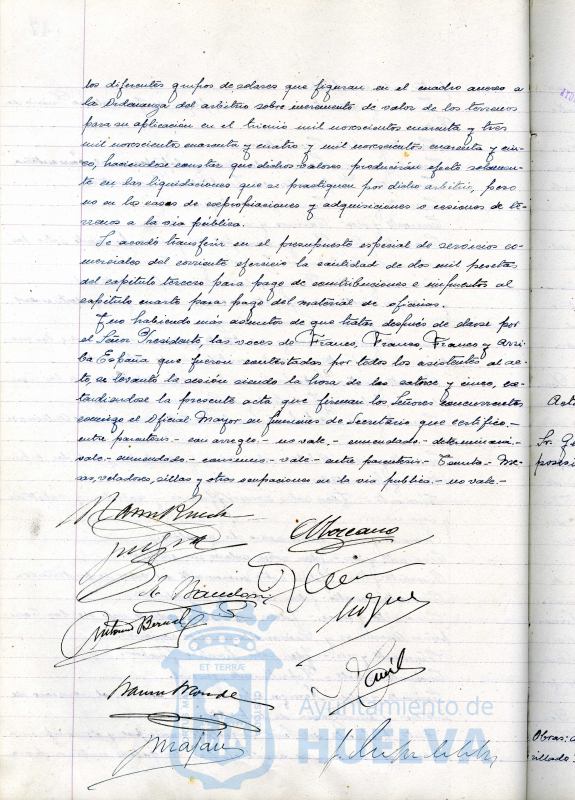 los diferentes grupos de solares que figuran en el cuadro anexo a
la Ordenanza del arbitrio sobre incremento de valor de los terrenos
para su aplicación en el trienio mil novecientos cuarenta y tres
mil novecientos cuarenta y cuatro y mil novecientos cuarenta y cin-
co, haciéndose constar que dichos valores producirán efecto solamen-
te en las liquidaciones que se practiquen por dicho arbitrio, pero
no en los casos de expropiaciones y adquisiciones o cesiones de te-
rrenos a la vía pública.
Se acordó transferir en el presupuesto especial de servicios co-
merciales del corriente ejercicio la cantidad de dos mil pesetas
del capítulo tercero para pago de contribuciones e impuestos al
capítulo cuarto para pago del material de oficinas.
Y no habiendo más asuntos de que tratar después de darse por
el Señor Presidente, las voces de Franco, Franco, Franco y Arri-
ba España que fueron contestadas por todos los asistentes al ac-
to, se levantó la sesión siendo la hora de las catorce y cinco, ex-
tendiéndose la presente acta que firman los Señores concurrentes
conmigo el Oficial Mayor en funciones de Secretario que certifico.-
entre paréntesis - con arreglo - no vale - enmendado - determinaci-
vale - enmendado - - vale - entre paréntesis - - Me-
sas, veladores, sillas y otras ocupaciones en la vía pública - no vale -
Antonio Bernal
ET TERRÆ
Ayuntamiento de
HUELVA
Act
Sr. G
Obras: